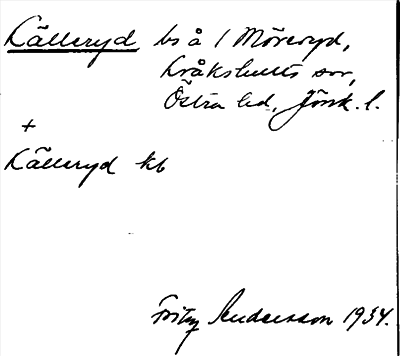 Källeryd bs å 1 Möreryd,
Kråkshults sn,
Östra hd, Jönk. l.
+
Källeryd kb
Fritz Andersson 1934.